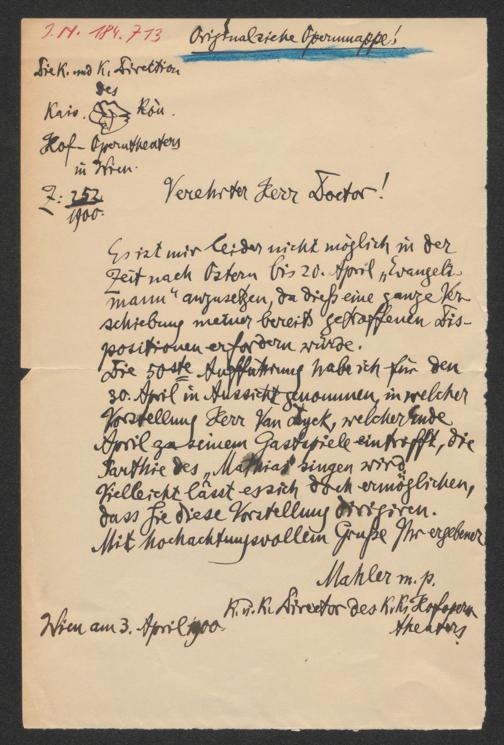 I. N. 184.713
Originalsiehe Opernmappe!
Die K. und K. Direktion
des
Kais. Kön.
Hof-Operntheaters
in Wien.
Z: 252
1900.
Verehrter Herr Doctor!
Es ist mir leider nicht möglich in der
Zeit nach Ostern bis 20. April „Evangeli-
mann“ anzusetzen, da dieß eine ganze Ver-
schiebung meiner bereits getroffenen Dis-
positionen erfordern würde.
Die 50ste Aufführung habe ich für den
30. April in Aussicht genommen, in welcher
Vorstellung Herr Van Dyck, welcher Ende
April zu seinem Gastspiele eintrifft, die
Parthie des „Mathias“ singen wird.
Vielleicht lässt es sich doch ermöglichen,
dass Sie diese Vorstellung dirigiren.
Mit hochachtungsvollem Gruße Ihr ergebener
Mahler m. p.
K. u. K. Director des K. K. Hofopern
theaters.
Wien am 3. April 1900